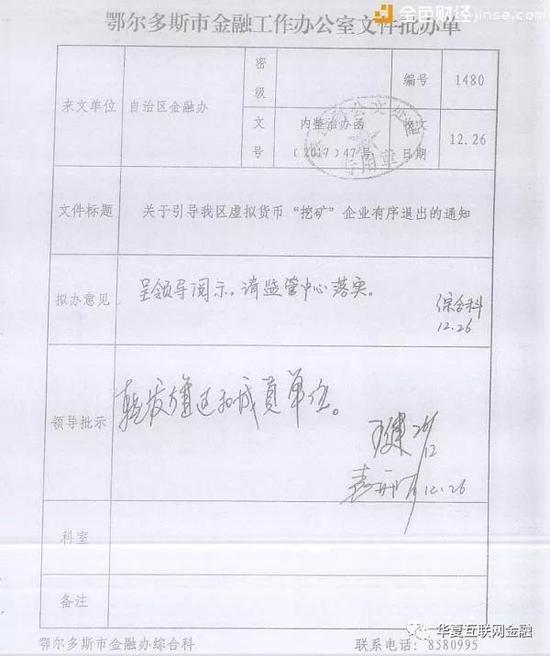 金色财经 jinse.com
鄂尔多斯市金融工作办公室文件批办单
来文单位
自治区金融办
密级
编号
1480
文号
内整治办函〔2017〕47号
收文日期
12.26
文件标题
关于引导我区虚拟货币“挖矿”企业有序退出的通知
拟办意见
呈领导阅示。请监管中心落实。
综合科
12.26
领导批示
转发旗区和成员单位。
12.26
科室
备注
华夏互联网金融
鄂尔多斯市金融办综合科
联系电话: 8580995